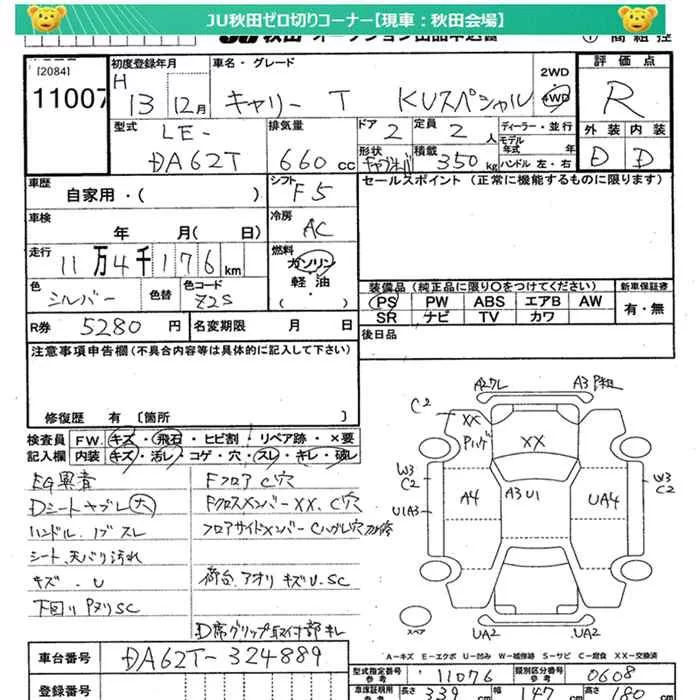 JU秋田ゼロ切りコーナー【現車：秋田会場】
JU 秋田 オークション出品申込書
[2084]
11007
初度登録年月
H 13 12月
車名・グレード
キャリー T KUスペシャル
2WD
4WD
評価点
R
外装 内装
D D
型式
LE-
DA62T
排気量
660 cc
ドア
2
定員
2 人
形状
積載
350 kg
ディーラー・並行
モデル年式 年
ハンドル 左・右
車歴
自家用・( )
シフト
F5
セールスポイント (正常に機能するものに限ります)
車検
年 月( 日)
冷房
AC
走行
11万4千176 km
燃料
ガソリン
軽油
・( )
色
シルバー
色替
色コード
Z2S
装備品 (純正品に限り○をつけてください)
新車保証書
PS PW ABS エアB AW
SR ナビ TV カワ
有・無
R券 5280 円
名変期限 月 日
後日品
注意事項申告欄 (不具合内容等は具体的に記入して下さい)
修復歴 有 [箇所 ]
検査員記入欄
F.W. キズ・飛石・ヒビ割・リペア跡・×要
内装 キズ・汚レ・コゲ・穴・スレ・キレ・破レ
EG異音
Dシートヤブレ大
ハンドル.ノブスレ
シート、天バリ汚れ
キズ.U
下回りPヌリSC
Fフロア C穴
FクロスメンバーXX、C穴
フロアサイドメンバーCハグレ穴
荷台.アオリ キズU.SC
D席グリップ取付部キレ
A2ワレ
A3
C2
XX
XX
W3
C2
U1A3
A4
A3U1
UA4
W3
C2
スペア
UA2
UA2
A=キズ E=エクボ U=凹み W=補修跡 S=サビ C=腐食 XX=交換済
車台番号
DA62T-324889
型式指定番号
参考
11076
類別区分番号
参考
0608
登録番号
車庫証明用
参考
長さ 339 cm
幅 147 cm
高さ 180 cm